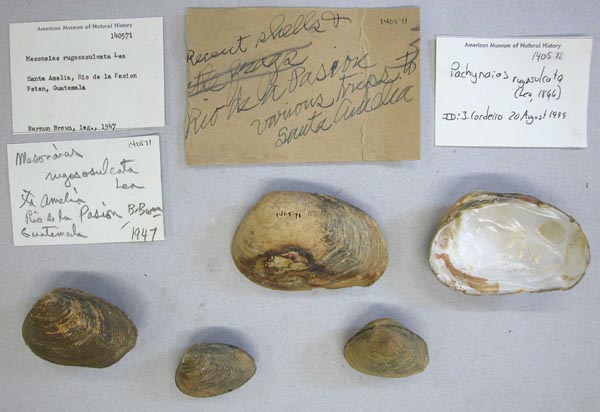 American Museum of Natural History
140571
Mesonaias rugososulcata Lea
Santa Amelia, Rio de la Pasion
Peten, Guatemala
Barnum Brown, leg., 1947
140571
Recent shells &
Rio de la Pasion
various trips to
Santa Amelia
American Museum of Natural History
140571
Pachynaias rugosulcata
(Lea, 1866)
ID: J. Cordeiro 20 August 1999
140571
Mesonaias
rugososulcata
Lea
Sta Amelia
Rio de la Pasion B. Brown
Guatemala 1947
140571